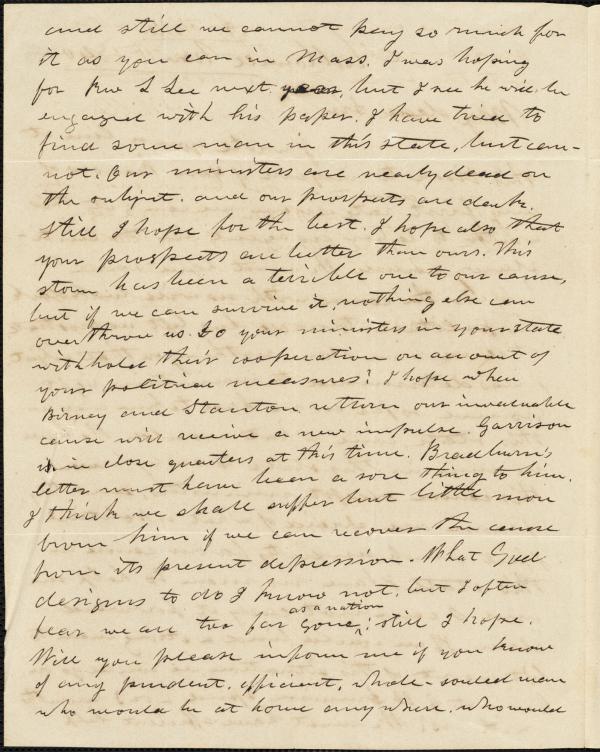 and still we cannot pay so much for
it as you can in Mass. I was hoping
for Rev L Lee next year, but I see he will be
engaged with his paper. I have tried to
find some man in this state, but can-
not. Our ministers are nearly dead on
the subject. and our prospects are dark.
Still I hope for the best. I hope also that
your prospects are better than ours. This
storm has been a terrible one to our cause,
but if we can survive it, nothing else can
overthrow us. Do your ministers in your state
withhold their cooperation on account of
your political measures? I hope when
Birney and Stanton return our invaluable
cause will receive a new impulse. Garrison
is in close quarters at this time. Bradburn's
letter must have been a sore thing to him.
I think we shall suffer but little more
from him if we can recover the cause
from its present depression. What God
designs to do I know not, but I often
fear we are too far gone as a nation; still I hope.
Will you please inform me if you know
of any prudent, efficient, whole-souled man
who would be at home anywhere, who would